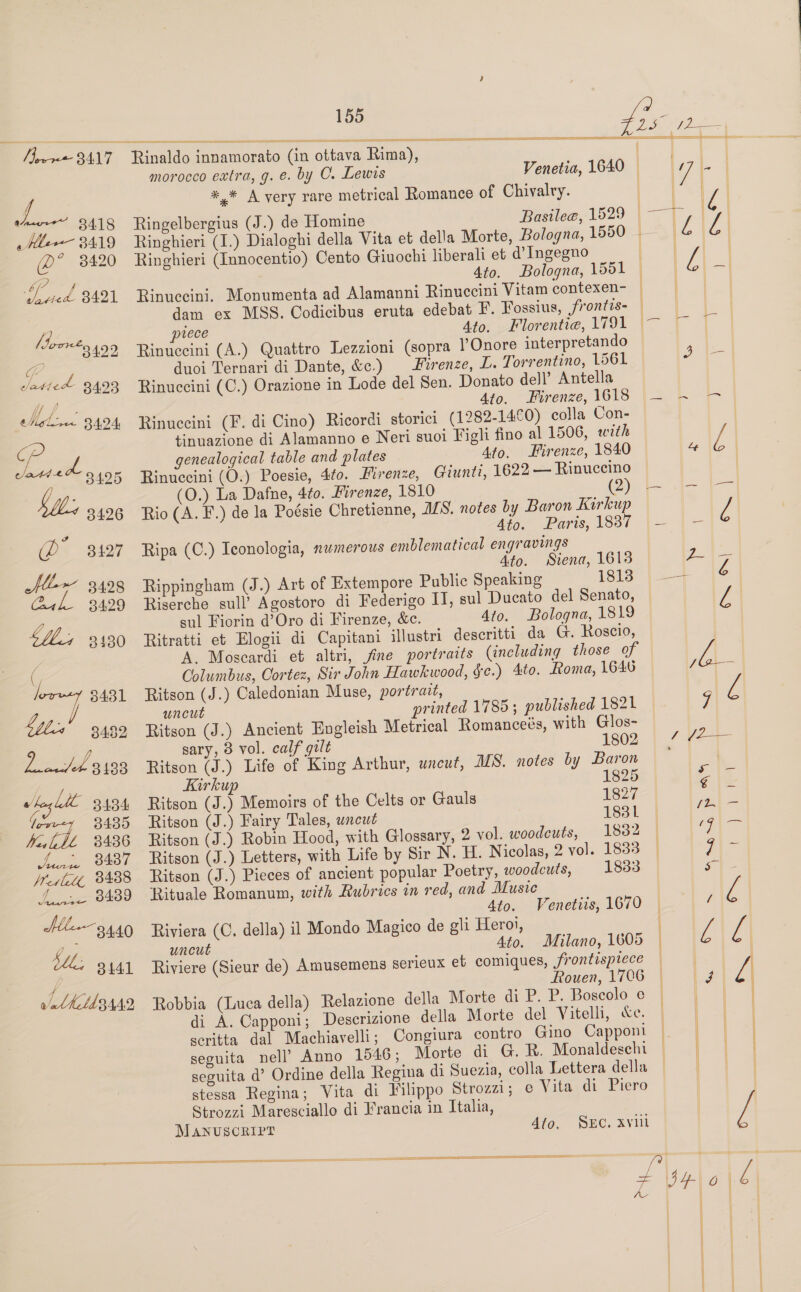 155
£25 12
Boone 3417 Rinaldo innamorato (in ottava Rima),
morocco extra, g. e. by C. Lewis Venetia, 1640 17 -
*** A very rare metrical Romance of Chivalry.
3418 Ringelbergius (J.) de Homine Basileæ, 1529 6
Allen 3419 Ringhieri (I.) Dialoghi della Vita et della Morte, Bologna, 1550 6 6
Do 3420 Ringhieri (Innocentio) Cento Giuochi liberali et d'Ingegno
4to. Bologna, 1551 6 -
3421 Rinuccini. Monumenta ad Alamanni Rinuccini Vitam contexen-
dam ex MSS. Codicibus eruta edebat F. Fossius, frontis-
piece 4to. Florentiæ, 1791
Boone 3422 Rinuccini (A.) Quattro Lezzioni (sopra l'Onore interpretando
duoi Ternari di Dante, &c.) Firenze, L. Torrentino, 1561 3 -
3423 Rinuccini (C.) Orazione in Lode del Sen. Donato dell' Antella
4to. Firenze, 1618
Molini 3424 Rinuccini (F. di Cino) Ricordi storici (1282-1460) colla Con-
tinuazione di Alamanno e Neri suoi Figli fino al 1506, with
genealogical table and plates 4to. Firenze, 1840 4 6
3425 Rinuccini (O.) Poesie, 4to. Firenze, Giunti, 1622 — Rinuccino
(O.) La Dafne, 4to. Firenze, 1810 (2)
3426 Rio (A. F.) de la Poésie Chretienne, MS. notes by Baron Kirkup
4to. Paris, 1837 - 6
Do 3427 Ripa (C.) Iconologia, numerous emblematical engravings
4to. Siena, 1613 2 -
Allen 3428 Rippingham (J.) Art of Extempore Public Speaking 1813 6
3429 Riserche sull' Agostoro di Federigo II, sul Ducato del Senato,
sul Fiorin d'Oro di Firenze, &c. 4to. Bologna, 1819 6
3430 Ritratti et Elogii di Capitani illustri descritti da G. Roscio,
A. Moscardi et altri, fine portraits (including those of
Columbus, Cortez, Sir John Hawkwood, &c.) 4to. Roma, 1646
3431 Ritson (J.) Caledonian Muse, portrait,
uncut printed 1785; published 1821 9 6
3432 Ritson (J.) Ancient Engleish Metrical Romanceës, with Glos-
sary, 3 vol. calf gilt 1802 1 12
3433 Ritson (J.) Life of King Arthur, uncut, MS. notes by Baron
Kirkup 1825 5 -
3434 Ritson (J.) Memoirs of the Celts or Gauls 1827 -
3435 Ritson (J.) Fairy Tales, uncut 1831 12 -
3436 Ritson (J.) Robin Hood, with Glossary, 2 vol. woodcuts, 1832 19 -
3437 Ritson (J.) Letters, with Life by Sir N. H. Nicolas, 2 vol. 1833 9 -
3438 Ritson (J.) Pieces of ancient popular Poetry, woodcuts, 1833 5 -
3439 Rituale Romanum, with Rubrics in red, and Music
4to. Venetiis, 1670 1 6
Allen 3440 Riviera (C. della) il Mondo Magico de gli Heroi,
uncut 4to. Milano, 1605 6 6
3441 Riviere (Sieur de) Amusemens serieux et comiques, frontispiece
Rouen, 1706 3 6
3442 Robbia (Luca della) Relazione della Morte di P. P. Boscolo e
di A. Capponi; Descrizione della Morte del Vitelli, &c.
scritta dal Machiavelli; Congiura contro Gino Capponi
seguita nell' Anno 1546; Morte di G. R. Monaldeschi
seguita d' Ordine della Regina di Suezia, colla Lettera della
stessa Regina; Vita di Filippo Strozzi; e Vita di Piero
Strozzi Maresciallo di Francia in Italia,
Manuscript 4to. Sec. xviii 6
£ 34 0 6